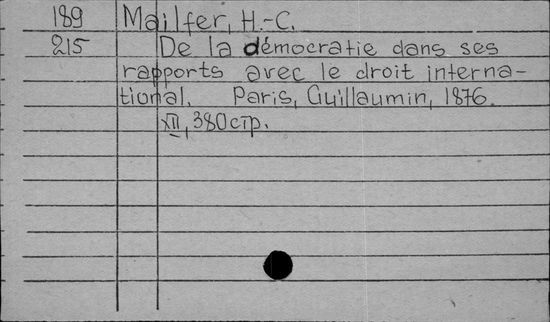 189 Mailfer, H.-C.
215 De la démocratie dans ses
rapports avec le droit interna-
tional. Paris, Guillaumin, 1876.
XII, 380 стр.